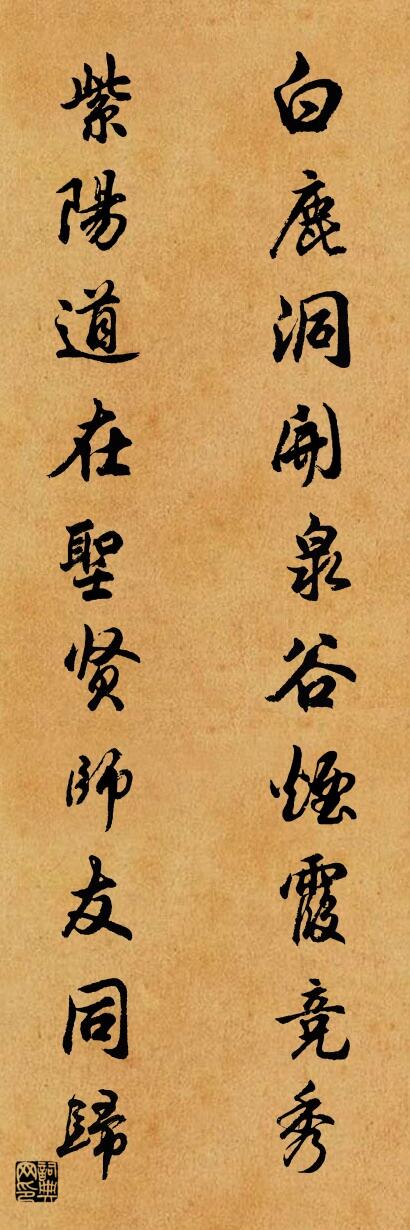 白鹿洞開泉谷煙霞竞秀
紫陽道在聖贤師友同歸
詞典网印